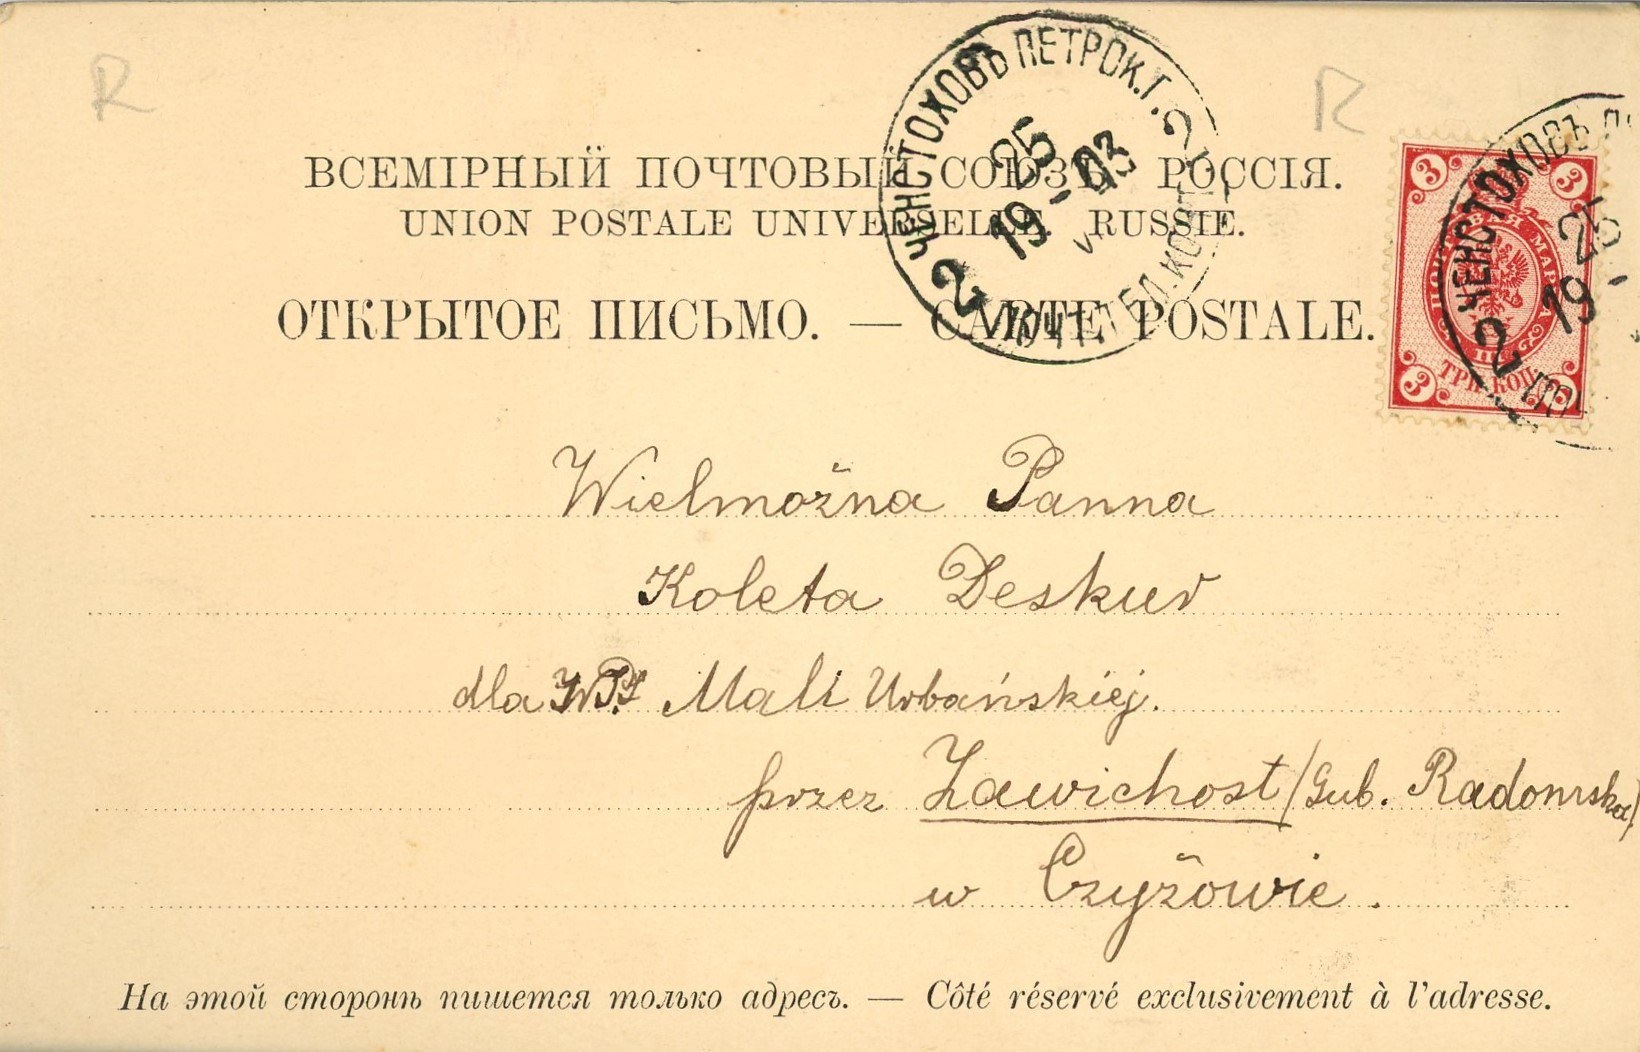 R
R
ЧЕНСТОХОВЪ ПЕТРОК.Г.
2 2
25
19-03
VI
ПОЧТ. ТЕЛ. КОНТ.
ВСЕМІРНЫЙ ПОЧТОВЫЙ СОЮЗЪ. РОССІЯ.
UNION POSTALE UNIVERSELLE. RUSSIE.
ОТКРЫТОЕ ПИСЬМО. — CARTE POSTALE.
3 3
ПОЧТОВАЯ МАРКА
III
ТРИ КОП.
3 3
ЧЕНСТОХОВЪ
2
25
19-
Wielmożna Panna
Koleta Deskur
dla Mali Urbańskiej.
przez Zawichost (Gub. Radomska)
w Czyżowie.
На этой сторонѣ пишется только адресъ. — Côté réservé exclusivement à l'adresse.